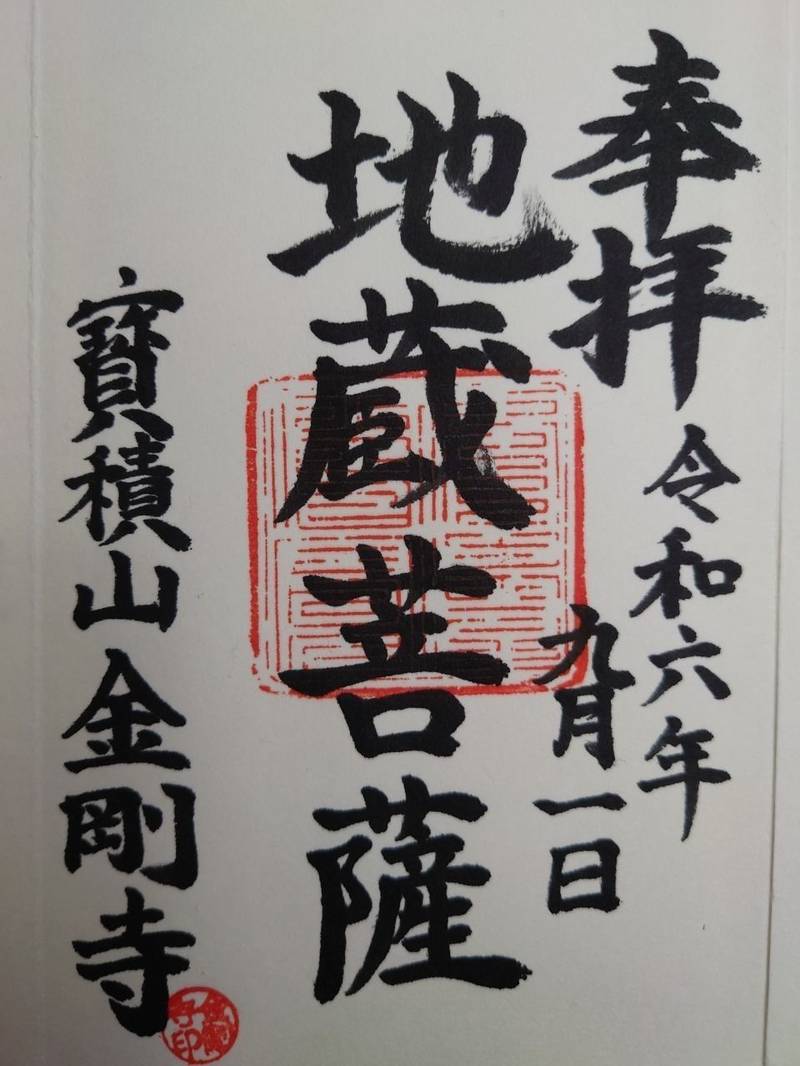 奉拝
令和六年
九月一日
地蔵菩薩
寶積山金剛寺